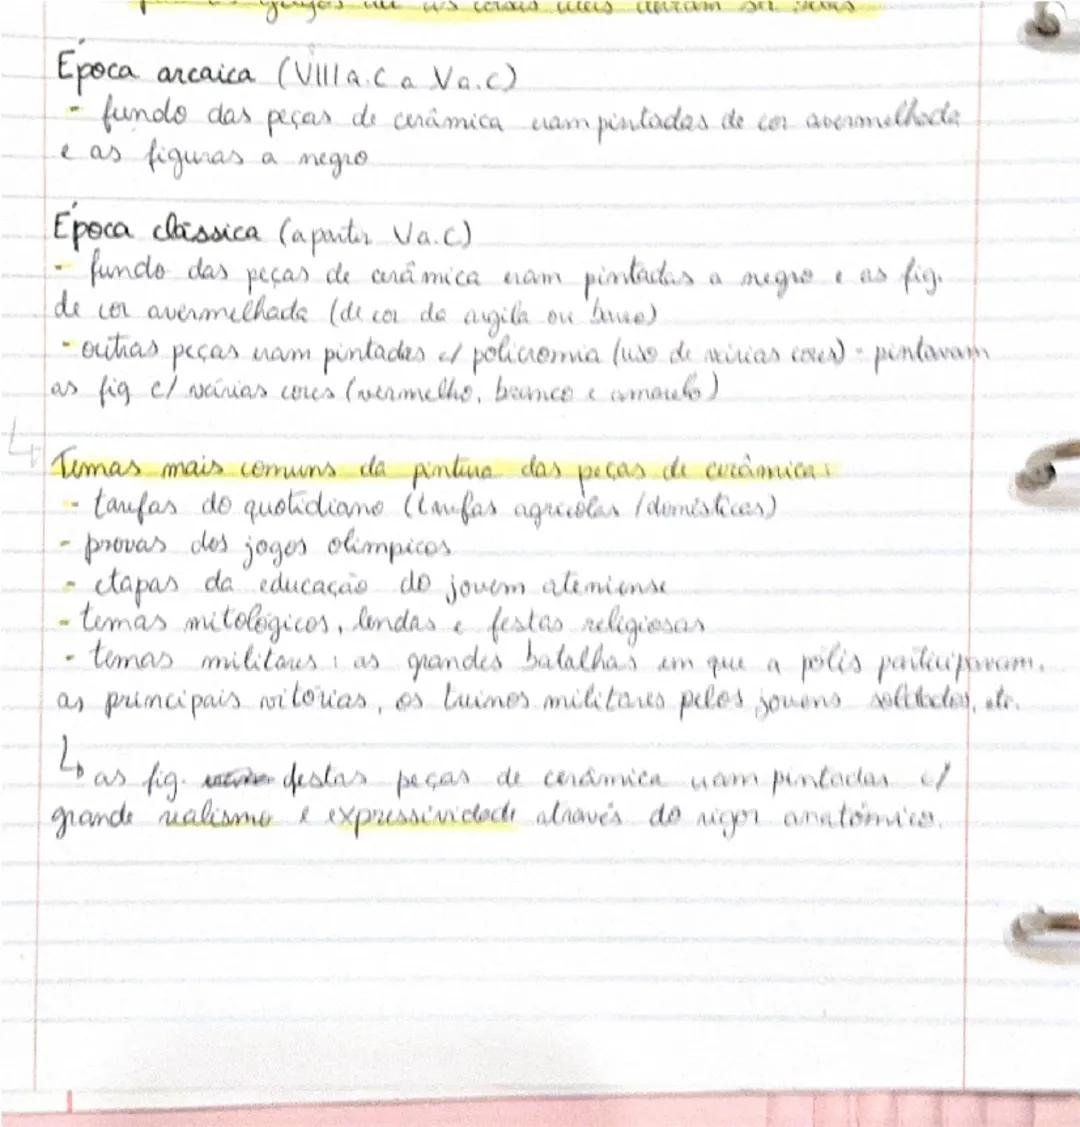 gregos
Época arcaica (VIII a.C a V a.c)
- fundo das peças de cerâmica eram pintadas de cor avermelhada
e as figuras a negro
Época clássica (a partir V a.c)
- fundo das peças de cerâmica eram pintadas a negro e as fig.
de cor avermelhada (de cor da argila ou barro)
- outras peças eram pintadas c/ policromia (uso de várias cores) - pintavam
as fig c/ várias cores (vermelho, branco e amarelo)
↳ Temas mais comuns da pintura das peças de cerâmica:
- tarefas do quotidiano (tarefas agrícolas / domésticas)
- provas dos jogos olímpicos
- etapas da educação do jovem ateniense
- temas mitológicos, lendas e festas religiosas
- temas militares: as grandes batalhas em que a pólis participavam,
as principais vitórias, os treinos militares pelos jovens soldados, etc.
↳ as fig. destas peças de cerâmica eram pintadas c/
grande realismo e expressividade através do rigor anatómico.